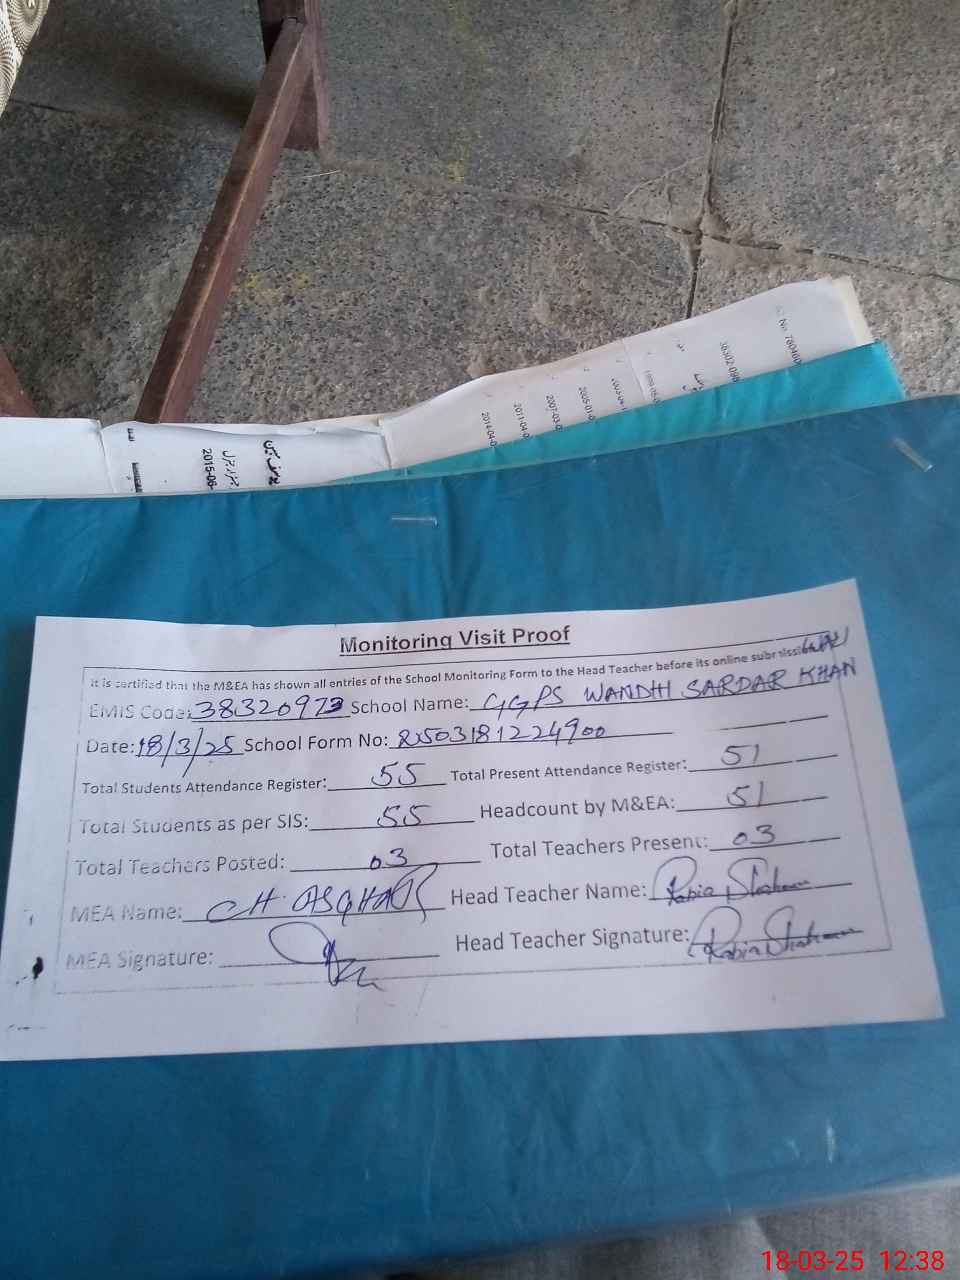 2014-04-0
2011-04-0
2007-03-0
2005-01-0
38302-098
2015-06-
Monitoring Visit Proof
It is certified that the M&EA has shown all entries of the School Monitoring Form to the Head Teacher before its online submission
EMIS Code: 38320973 School Name: GGPS WANDHI SARDAR KHAN
Date: 18/3/25 School Form No:
Total Students Attendance Register: 55 Total Present Attendance Register: 51
Total Students as per SIS: 55 Headcount by M&EA: 51
Total Teachers Posted: 03 Total Teachers Present: 03
MEA Name: CH. ASGHAR Head Teacher Name: Rabia Shaheen
MEA Signature: Head Teacher Signature: Rabia Shaheen
18-03-25 12:38